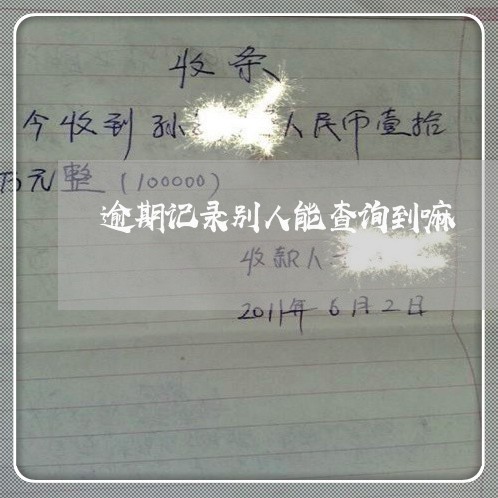 收条
今收到孙 人民币壹拾
万元整(100000)
逾期记录别人能查询到嘛
收款人
2011年6月2日